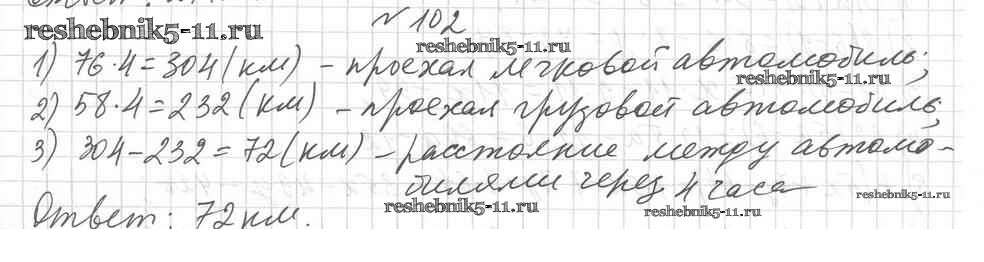 № 102
reshebnik5-11.ru
reshebnik5-11.ru
1) 76·4=304(км) – проехал легковой автомобиль;
reshebnik5-11.ru
2) 58·4=232(км) – проехал грузовой автомобиль;
3) 304–232=72(км) – расстояние между автомо-
билями через 4 часа
reshebnik5-11.ru
reshebnik5-11.ru
reshebnik5-11.ru
Ответ: 72 км.